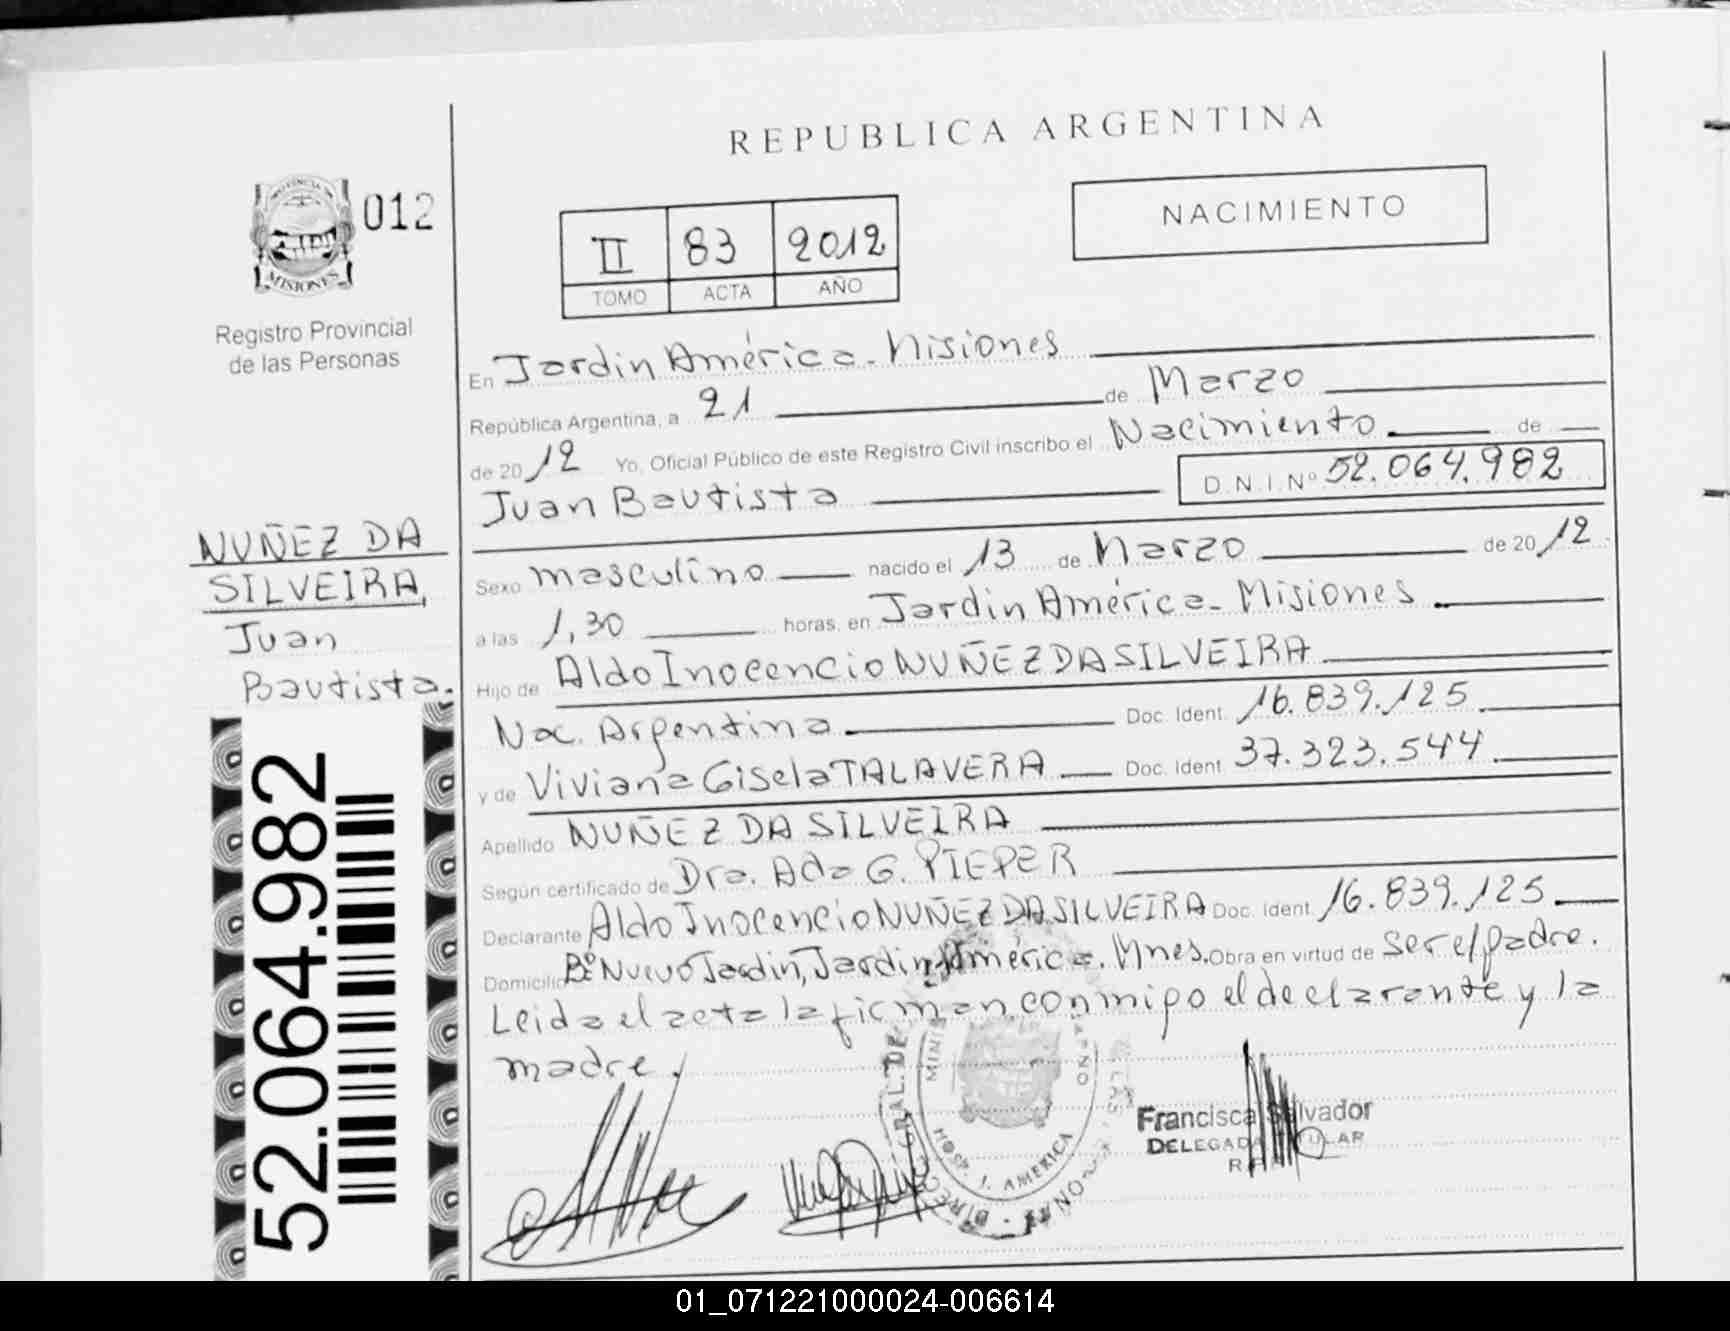 REPUBLICA ARGENTINA
PROVINCIA DE
MISIONES
012
Registro Provincial
de las Personas
II 83 2012
TOMO ACTA AÑO
NACIMIENTO
En Jardin América - Misiones
República Argentina, a 21 de Marzo
de 2012 Yo, Oficial Público de este Registro Civil inscribo el Nacimiento de
Juan Bautista D.N.I.Nº 52.064.982
NUÑEZ DA
SILVEIRA,
Juan
Bautista.
52.064.982
Sexo masculino nacido el 13 de Marzo de 2012
a las 1,30 horas, en Jardin América - Misiones
Hijo de Aldo Inocencio NUÑEZ DA SILVEIRA
Nac. Argentina Doc. Ident. 16.839.125
y de Viviana Gisela TALAVERA Doc. Ident. 37.323.544
Apellido NUÑEZ DA SILVEIRA
Según certificado de Dra. Ada G. PIEPER
Declarante Aldo Inocencio NUÑEZ DA SILVEIRA Doc. Ident. 16.839.125
Domicilio Bº Nuevo Jardin, Jardin América. Mnes. Obra en virtud de ser el padre.
Leida el acta la firman conmigo el declarante y la
madre.
Francisca Salvador
DELEGADA TITULAR
HOSP. J. AMERICA
01_071221000024-006614